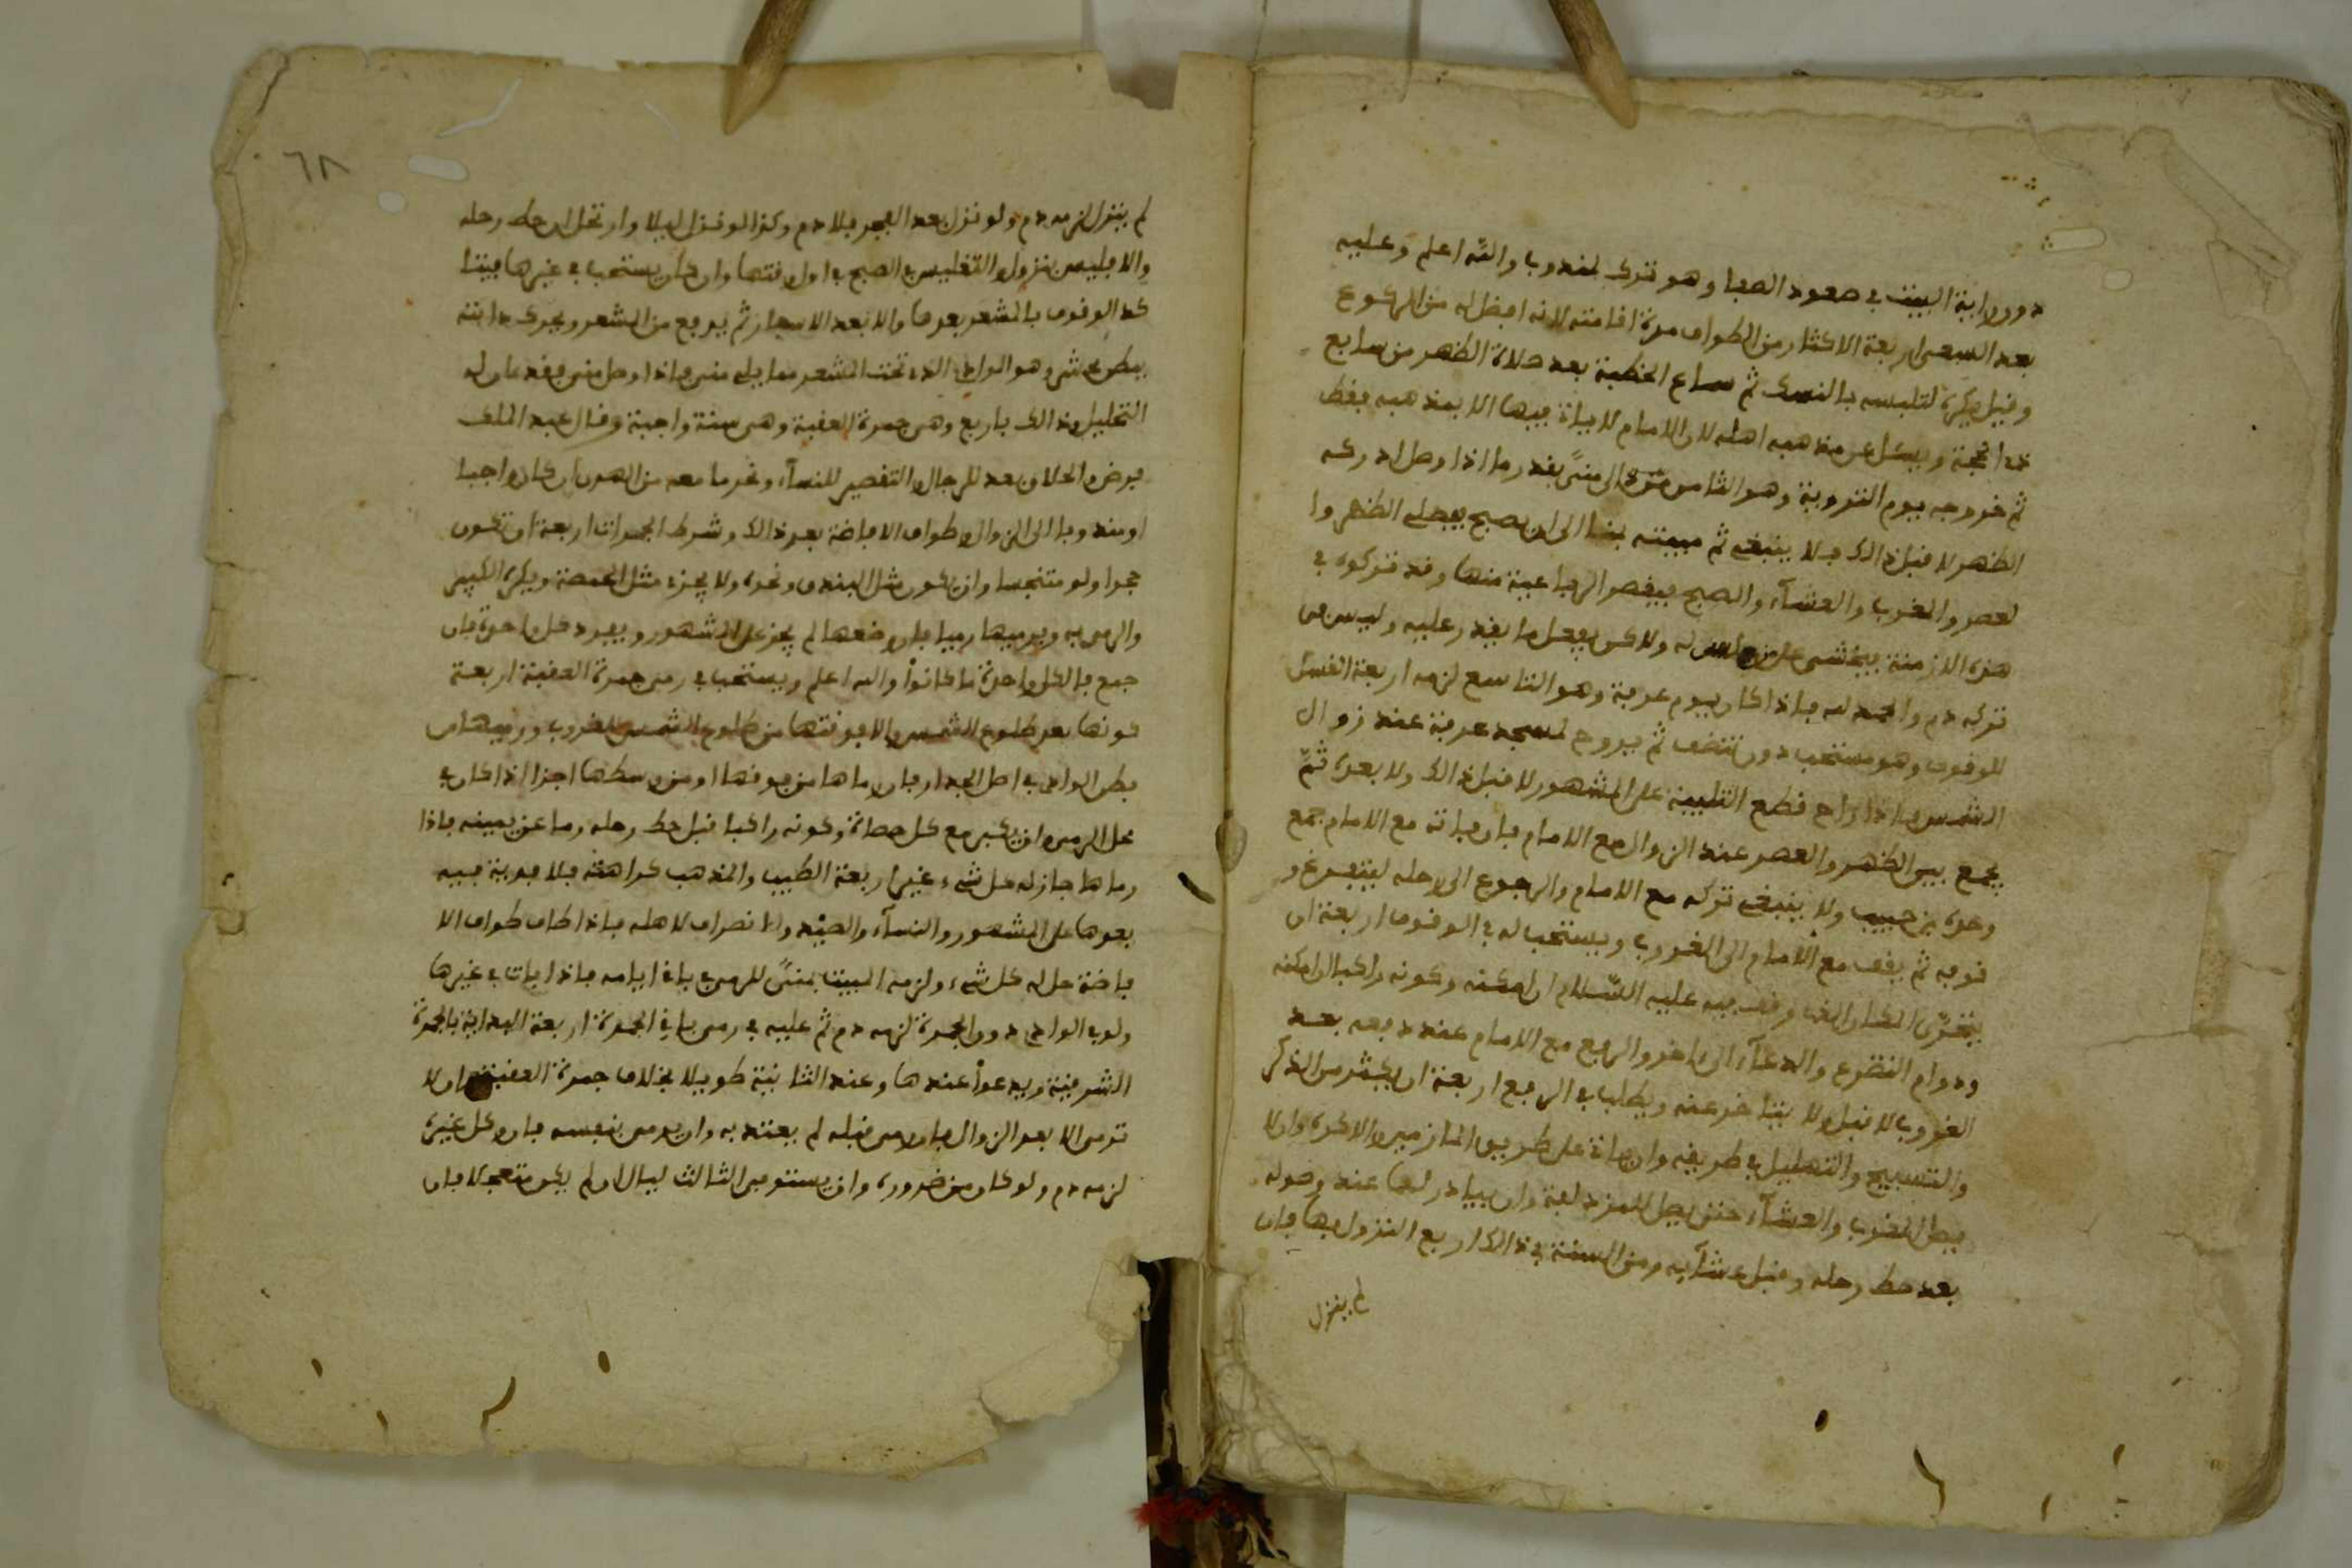 دون رايية البيت في صعود الصفا وهو ترك لمندوب والله اعلم وعليه
بعد السعي اربعة الاكثار من الطواف مدة اقامته لانه افضل له من الركوع
وقيل يكره لتلبسه بالنسك ثم سماع الخطبة بعد صلاة الظهر من سابع
ذي الحجة ويسئل عن مذهبه اهله لان الامام لا ياة فيها الا بمذهبه فقط
ثم خروجه يوم التروية وهو الثامن الى منى بقدر ما اذا وصل ادركه
الظهر لا قبل ذالك فلا ينبغي ثم مبيته بها الى ان يصبح فيصلي الظهر وا
لعصر والمغرب والعشاء والصبح فيقصر الرباعية منها وقد تركوه في
هذه الازمنة فيخشى على له ولاكن يفعل ما يقدر عليه وليس في
تركه دم والحمد لله فاذا كان يوم عرفة وهو التاسع لزمه اربعة الغسل
للوقوف وهو مستحب دون تنظف ثم يروح لمسجد عرفة عند زوال
الشمس فاذا راح قطع التلبية على المشهور لا قبل ذالك ولا بعده ثم
يجمع بين الظهر والعصر عند الزوال مع الامام فان فاته مع الامام جمع
وحده بن حبيب ولا ينبغي تركه مع الامام والرجوع الى رحله ليتفرغ و
قوفه ثم يقف مع الامام الى الغروب ويستحب له في الوقوف اربعة ان
يتحرى المكان الذي وقف فيه عليه السلام ان امكنه وكونه راكبا ان امكنه
ودوام التضرع والدعاء الى ءاخر والرفع مع الامام عند دفعه بعد
الغروب لا قبل ولا يتاخر عنه ويطلب في الرفع اربعة ان يكثر من الذكر
والتسبيح والتهليل في طريقه وان ياة على طريق المازمين والاكره وان لا
يصلي المغرب والعشاء حتى يصل للمزدلفة وان يبادر لهما عند وصوله
بعد حط رحله وقبل عشآيه ومن السنة في ذالك اربع النزول بها فان
لم ينزل
٦٨
لم ينزل لزمه دم ولو نزل بعد الفجر فلا دم وكذا لو نزل ليلا وارتحل ان حط رحله
والا فليس بنزول والتغليس في الصبح في اول وقتها وان كان يستحب في غيرها فهنا
كد الوقوف بالمشعر بعرها ولا بعد الاسفار ثم يدفع من المشعر ويحرك دابته
ببطن محسر وهو الوادي الذي تحت المشعر مما يلي منى فاذا وصل منى فقد حان له
التحليل وذالك باربع رمي جمرة العقبة وهي سنة واجبة وقال عبد الملك
فرض والحلاق بعد للرجال والتقصير للنساء ونحر ما معه من الهدي ان كان واجبا
او مندوبا الى الزوال وطواف الافاضة بعد ذالك وشرط الجمرات اربعة ان تكون
حجرا ولو متنجسا وان يكون مثل البندق ونحوه ولا يجزء مثل الحمصة ويكره الكبير
والرمي به ويرميها رميا فان وضعها لم يجز على المشهور ويفرد كل واحدة فان
جمع فالكل واحدة ما كانوا والله اعلم ويستحب في رمي جمرة العقبة اربعة
كونها بعد طلوع الشمس والا فوقتها من طلوع الشمس للغروب ورميها من
بطن الوادي في اصل الجدار فان رماها من فوقها او من وسطها اجزا اذا كان في
محل الرمي وان يكبر مع كل حصاة وكونه راكبا قبل حط رحله رما عن يمينه فاذا
رماها جاز له كل شيء غير اربعة الطيب والمذهب كراهته فلا فدية فيه
بعدها على المشهور والنساء والصيد والانصراف لاهله فاذا طاف طواف الا
فاضة حل له كل شيء ولزمه المبيت بمنى للرمي في باقي ايامه فاذا بات في غيرها
ولو في الوادي دون الجمرة لزمه دم ثم عليه في رمي باقي الجمرة اربعة البداية بالجمرة
الشرقية ويدعوا عندها وعند الثانية طويلا بخلاف جمرة العقبة وان لا
ترمى الا بعد الزوال فان رمى قبله لم يعتد به وان يرمي بنفسه فان وكل غيره
لزمه دم ولو كان من ضرورة وان يستوفي الثالث ليال ان لم يكن متعجلا فان